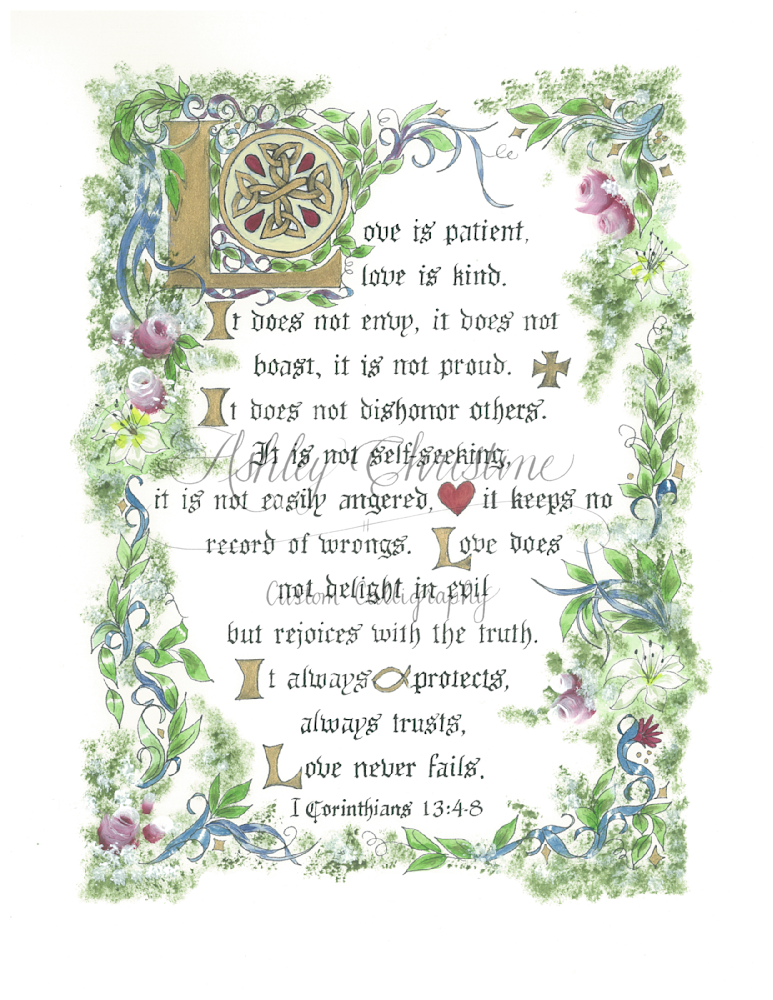 Love is patient,
love is kind.
It does not envy, it does not
boast, it is not proud.
It does not dishonor others.
It is not self-seeking,
Ashley Christine
it is not easily angered, it keeps no
record of wrongs. Love does
not delight in evil
Custom Calligraphy
but rejoices with the truth.
It always protects,
always trusts,
Love never fails.
I Corinthians 13:4-8